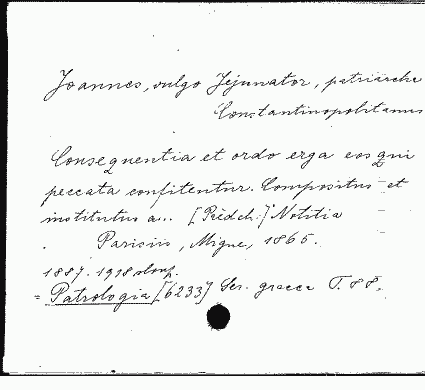 Joannes, vulgo Jejunator, patriarche
Constantinopolitanus
Consequentia et ordo erga eos qui
peccata confitentur. Compositus et
institutus a... [Prédch:] Notitia
Parisiis, Migne, 1865.
1887. 1918
= Patrologia [6233] Ser. graeca T. 88.